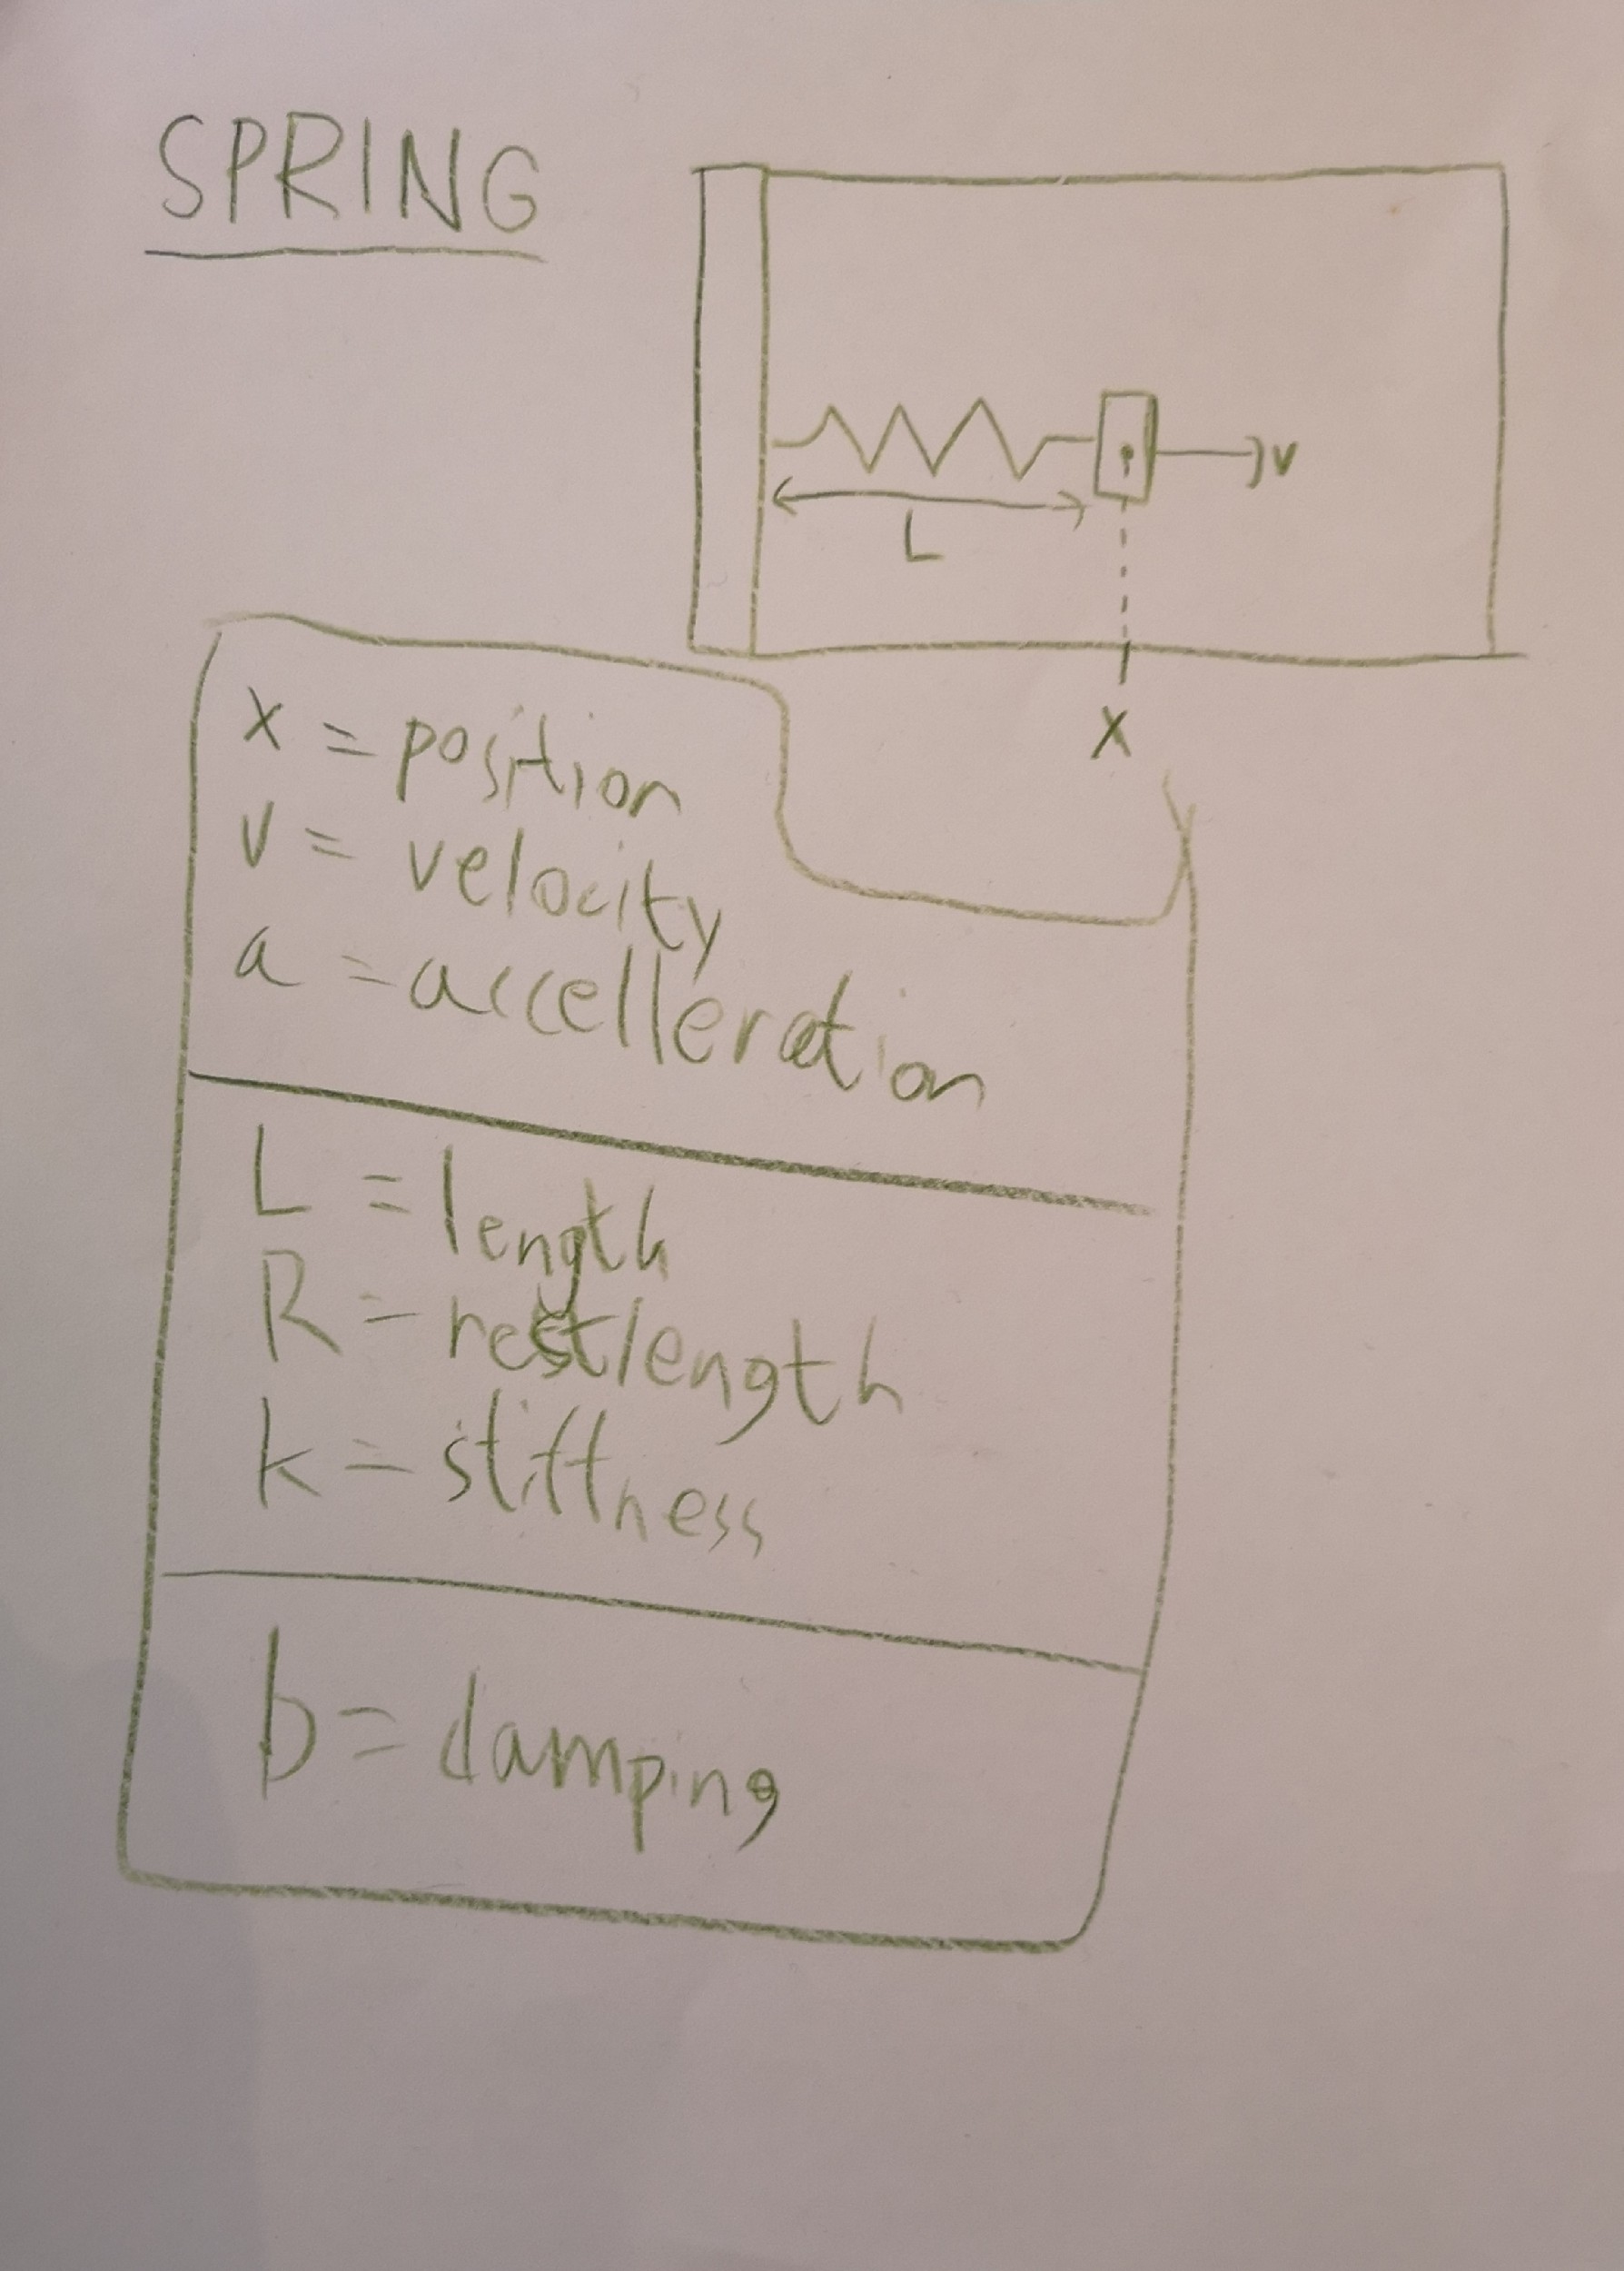 SPRING
v
L
x
x = position
v = velocity
a = accelleration
L = length
R = restlength
k = stiffness
b = damping